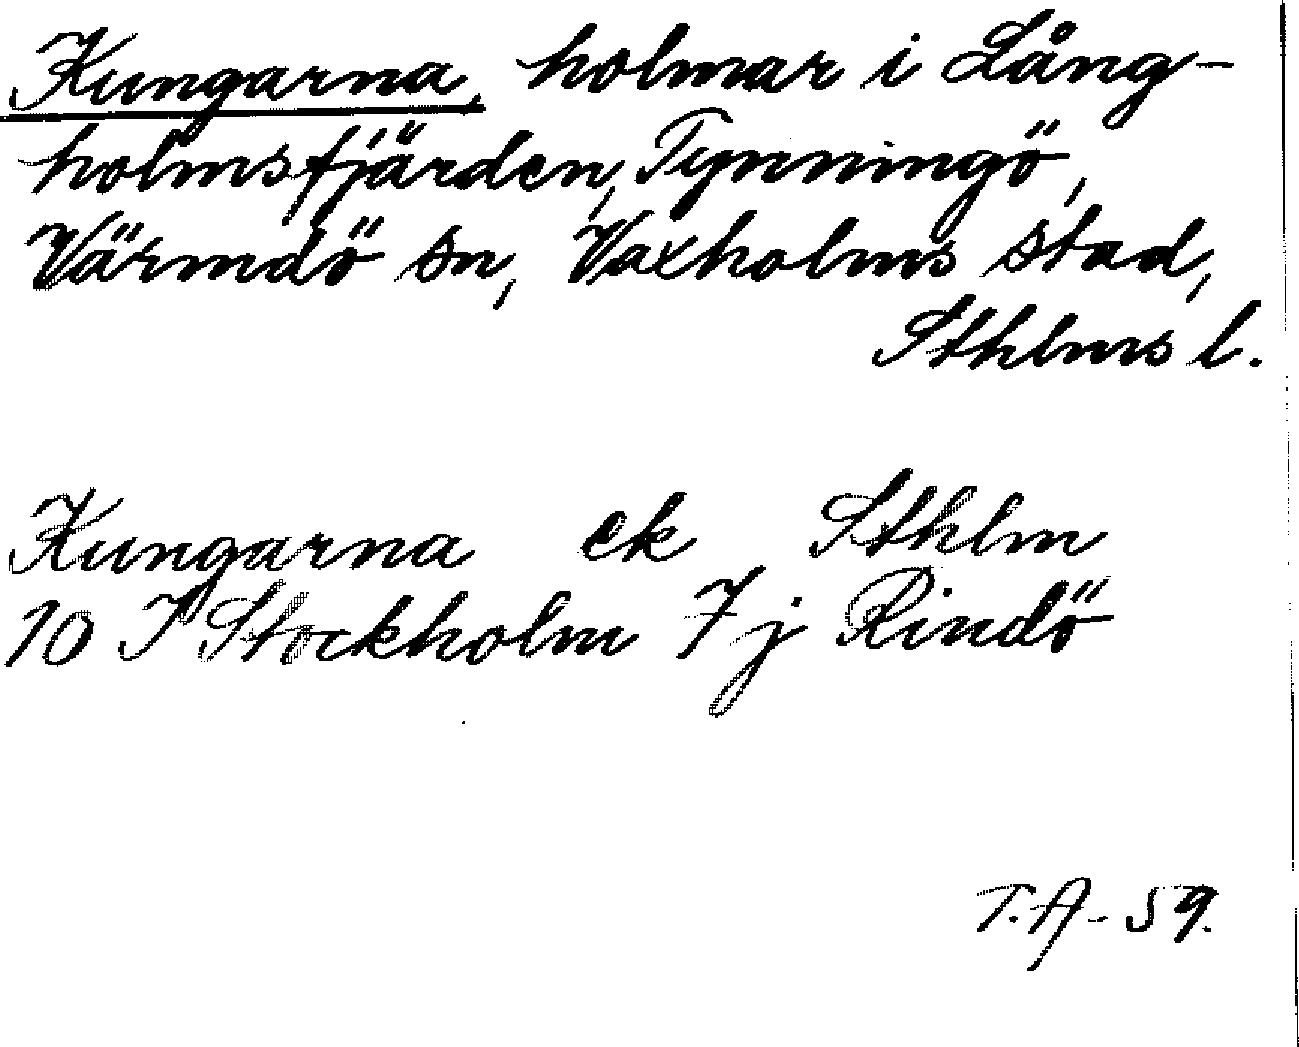 Kungarna, holmar i Lång-
holmsfjärden, Tynningö,
Värmdö sn, Vaxholms stad,
Sthlms l.
Kungarna ek Sthlm
10 I Stockholm 7j Rindö
T.A-59.